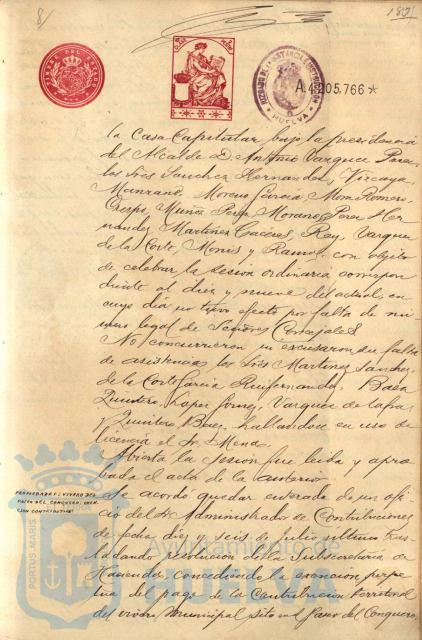 8/
TIMBRE DEL ESTADO
JUZGADO DE 1ª INSTANCIA E INSTRUCCION
HUELVA
A.4.205.766*
la Casa Capitular, bajo la presidencia
del Alcalde D. Antonio Vazquez Perez
los Sres Sanchez Hernandez, Vizcaya,
Manzano, Moreno Garcia, Mora Romero,
Crespo, Muñoz Perez, Morano, Perez Her
nandez, Martinez Caceres, Rey, Vazquez
de la Corte, Monis y Ramos, con objeto
de celebrar la sesion ordinaria correspon
diente al diez y nueve del actual, en
cuyo dia no tuvo efecto por falta de nú
mero legal de Señores Concejales.
No concurrieron ni excusaron su falta
de asistencia los Sres Martinez Sanchez,
de la Corte Garcia, Ruifernandez, Baez
Quintero, Lopez Gomez, Vazquez de la
y Quintero Baez, hallandose en uso de
licencia el Sr. Mena.
Abierta la sesion fue leida y apro
bada el acta de la anterior.
Se acordó quedar enterada de un ofi
cio del Sr. Administrador de Contribuciones
de fecha diez y seis de Julio ultimo tras
ladando resolucion de la subsecretaria de
Hacienda, concediendo la exencion perpe
tua del pago de la Contribucion territorial
del vivero Municipal sito en el Paseo del Conquero
PROPIEDADES. VIVERO DEL
PASEO DEL CONQUERO. EXEN
CION CONTRIBUTIVA
PORTUS MARIS
Ayuntamiento de
HUELVA